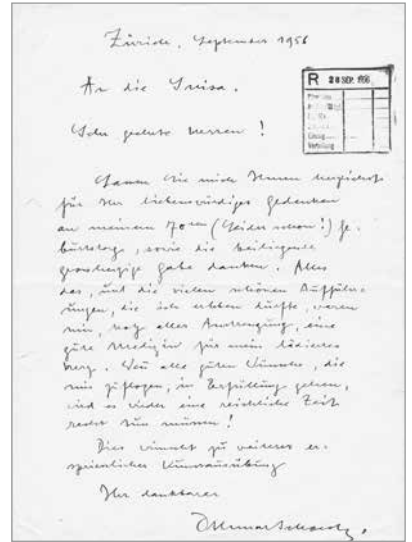 Zürich, September 1956
R 28 SEP. 1956
An die Suisa.
Sehr geehrte Herren!
Lassen Sie mich Ihnen herzlichst
für Ihr liebenswürdiges Gedenken
an meinem 70sten (leider schon!) Ge-
burtstage, sowie die beiliegende
grossherzige Gabe danken. Alles
das, und die vielen schönen Auffüh-
rungen, die ich erleben durfte, waren
mir, trotz aller Anstrengung, eine
gute Medizin für mein lädiertes
Herz. Wenn alle guten Wünsche, die
mir zuflogen, in Erfüllung gehen,
wird es wieder eine reichliche Zeit
müssen!
Dies zu weiterer er-
spriesslicher Kunstausübung
Ihr dankbarer
Othmar Schoeck.